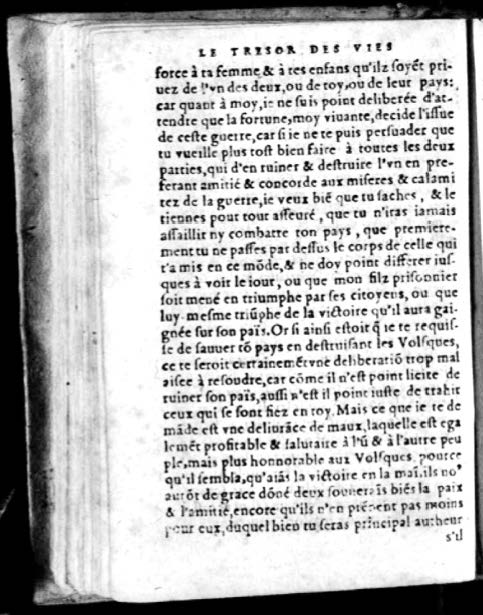 LE TRESOR DES VIES
force à ta femme & à tes enfans qu'ilz soyẽt pri-
uez de l'vn des deux, ou de toy, ou de leur pays:
car quant à moy, ie ne suis point deliberée d'at-
tendre que la fortune, moy viuante, decide l'issue
de ceste guerre, car si ie ne te puis persuader que
tu vueille plus tost bien faire à toutes les deux
parties, qui d'en ruiner & destruire l'vn en pre-
ferant amitié & concorde aux miseres & calami
tez de la guerre, ie veux biẽ que tu saches, & le
tiennes pour tout asseuré, que tu n'iras iamais
assaillir ny combatre ton pays, que premiere-
ment tu ne passes par dessus le corps de celle qui
t'a mis en ce mõde, & ne doy point differer ius-
ques à voir le iour, ou que mon filz prisonnier
soit mené en triumphe par ses citoyens, ou que
luy-mesme triũphe de la victoire qu'il aura gai-
gnée sur son païs. Or si ainsi estoit q̃ ie te requis-
se de sauuer tõ pays en destruisant les Volsques,
ce te seroit certainemẽt vne deliberatiõ trop mal
aisee à resoudre, car cõme il n'est point licite de
ruiner son païs, aussi n'est il point iuste de trahir
ceux qui se sont fiez en toy. Mais ce que ie te de
mãde est vne deliurãce de maux, laquelle est ega
lemẽt profitable & salutaire à l'ũ & à l'autre peu
ple, mais plus honnorable aux Volsques, pource
qu'il sembla, qu'aiãs la victoire en la maĩ, ils no'
aurõt de grace dõné deux souuerais biẽs la paix
& l'amitié, encore qu'ils n'en prẽnent pas moins
pour eux, duquel bien tu seras principal autheur
s'il